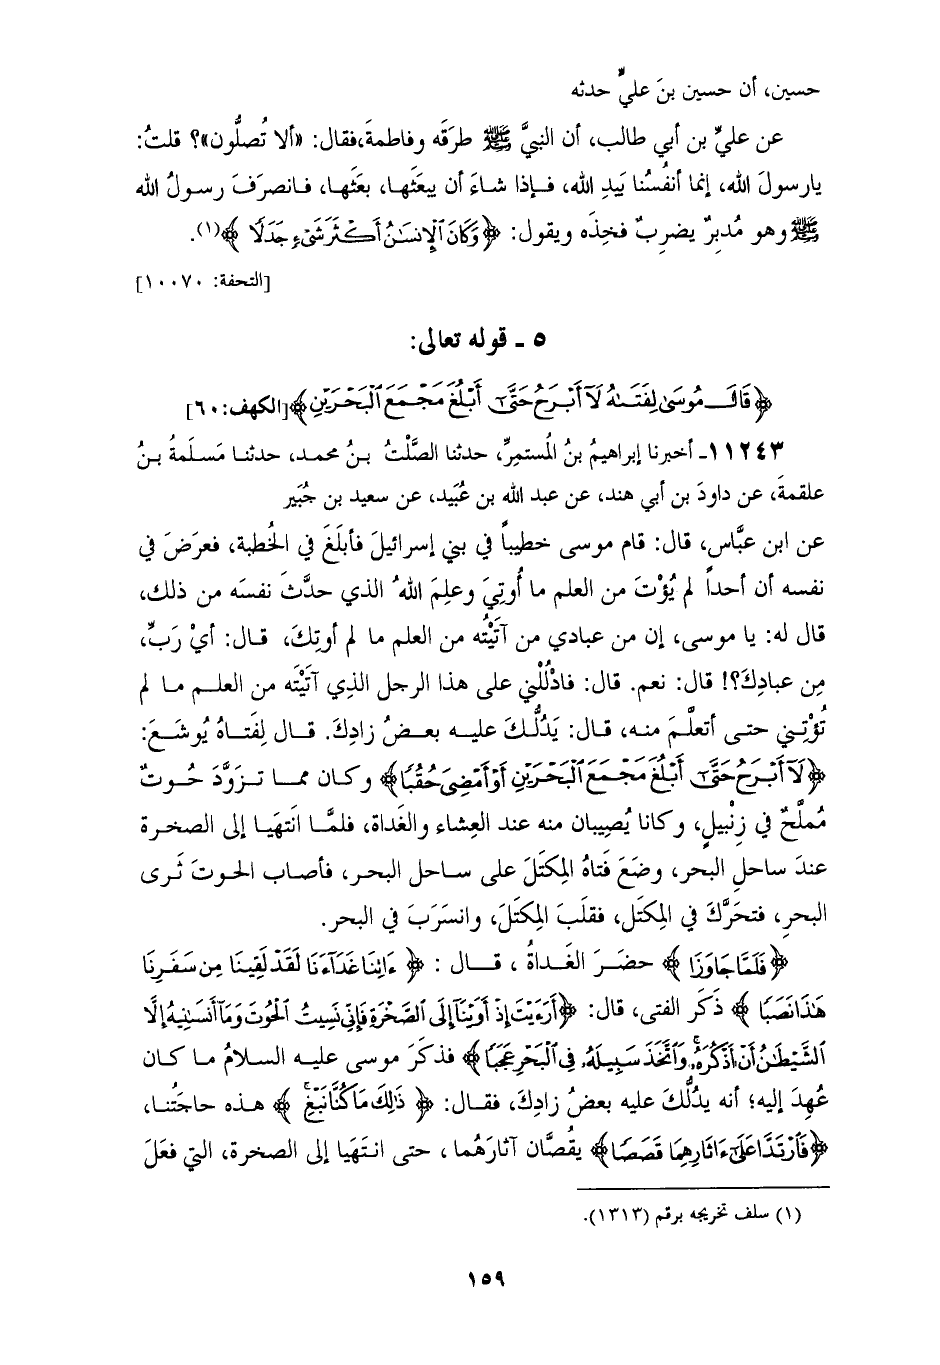 حسين، أن حسين بنَ عليٍّ حدثه
عن عليِّ بن أبي طالب، أن النبيَّ ﷺ طرَقَه وفاطمةَ،فقال: «ألا تُصلُّون»؟ قلتُ:
يارسولَ الله، إنما أنفسُنا بَيدِ الله، فـإذا شاءَ أن يبعَثَها، بعَثَها، فـانصرَفَ رسولُ الله
ﷺ وهو مُدبِرٌ يضرِبُ فخِذَه ويقول: ﴿وَكَانَ ٱلْإِنسَـٰنُ أَكْثَرَ شَىْءٍ جَدَلًا ﴾(١).
[التحفة: ١٠٠٧٠]
٥ ـ قوله تعالى:
﴿قَالَ مُوسَىٰ لِفَتَىٰهُ لَآ أَبْرَحُ حَتَّىٰٓ أَبْلُغَ مَجْمَعَ ٱلْبَحْرَيْنِ﴾[الكهف:٦٠]
١١٢٤٣ـ أخبرنا إبراهيمُ بنُ المُستمِرِّ، حدثنا الصَّلْتُ بـنُ محمد، حدثنـا مَسـلَمةُ بـنُ
علقمةَ، عن داودَ بن أبي هند، عن عبد الله بن عُبَيد، عن سعيد بن جُبَير
عن ابن عبَّاس، قال: قام موسى خطيباً في بني إسرائيلَ فأبلَغَ في الخُطبة، فعرَضَ في
نفسه أن أحداً لم يُؤْتَ من العلم ما أُوتِيَ وعلِمَ اللهُ الذي حدَّثَ نفسَه من ذلك،
قال له: يا موسى، إن من عبادي من آتَيْتُه من العلم ما لم أوتِكَ، قـال: أيْ رَبِّ،
مِن عبادِكَ؟! قال: نعم. قال: فادْلُلْني على هذا الرجل الذي آتَيْتَه من العلـم ما لم
تُؤْتِـني حتـى أتعلَّـمَ منـه، قـال: يَدُلُّـكَ عليـه بعـضُ زادِكَ. قـال لِفَتـاهُ يُوشَـعَ:
﴿لَآ أَبْرَحُ حَتَّىٰٓ أَبْلُغَ مَجْمَعَ ٱلْبَحْرَيْنِ أَوْ أَمْضِىَ حُقُبًا﴾ وكـان ممـا تـزوَّدَ حُـوتٌ
مُملَّحٌ في زِنْبيلٍ، وكانا يُصِيبان منه عند العِشاء والغَداة، فلمَّا انتهَيَا إلى الصخرة
عندَ ساحلِ البحر، وضَعَ فَتاهُ المِكتَلَ على سـاحل البحـر، فأصاب الحوتَ ثَرى
البحرِ، فتحرَّكَ في المِكتَل، فقلَبَ المِكتَلَ، وانسَرَبَ في البحر.
﴿فَلَمَّا جَاوَزَا ﴾ حضـرَ الغـداةُ ، قـال : ﴿ ءَاتِنَا غَدَآءَنَا لَقَدْ لَقِينَا مِن سَفَرِنَا
هَـٰذَا نَصَبًا ﴾ ذكَر الفتى، قال: ﴿أَرَءَيْتَ إِذْ أَوَيْنَآ إِلَى ٱلصَّخْرَةِ فَإِنِّى نَسِيتُ ٱلْحُوتَ وَمَآ أَنسَىٰنِيهُ إِلَّا
ٱلشَّيْطَـٰنُ أَنْ أَذْكُرَهُۥ وَٱتَّخَذَ سَبِيلَهُۥ فِى ٱلْبَحْرِ عَجَبًا﴾ فذكرَ موسى عليه السلامُ ما كان
عُهِدَ إليه؛ أنه يدُلُّكَ عليه بعضُ زادِكَ، فقال: ﴿ ذَٰلِكَ مَا كُنَّا نَبْغِ ﴾ هـذه حاجتُنـا،
﴿فَٱرْتَدَّا عَلَىٰٓ ءَاثَارِهِمَا قَصَصًا﴾ يقُصَّان آثارَهُما ، حتى انـتهَيا إلى الصخرة، التي فعَلَ
(١) سلف تخريجه برقم (١٣١٣).
١٥٩